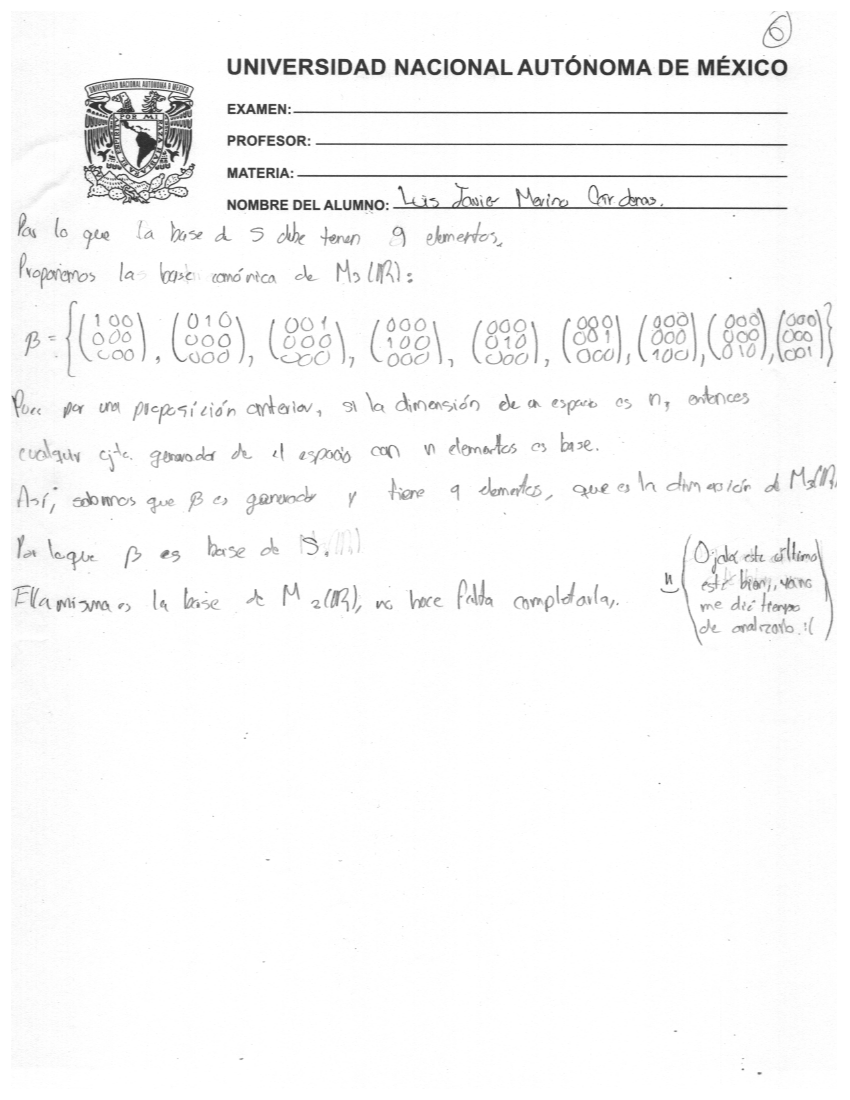 6
UNIVERSIDAD NACIONAL AUTÓNOMA DE MÉXICO
UNIVERSIDAD NACIONAL AUTONOMA D MEXICO
POR MI
EXAMEN:
PROFESOR:
MATERIA:
NOMBRE DEL ALUMNO: Luis Javier Merino Cárdenas.
Por lo que la base d S debe tener 9 elementos.
Proponemos la base canónica de M₃(ℝ):
β = {(100 000 000), (010 000 000), (001 000 000), (000 100 000), (000 010 000), (000 001 000), (000 000 100), (000 000 010), (000 000 001)}
Pues por una proposición anterior, si la dimensión de un espacio es n, entonces
cualquier cjto. generador de el espacio con n elementos es base.
Así, sabemos que β es generador y tiene 9 elementos, que es la dimensión d M₃(ℝ)
Por lo que β es base de S.
Ella misma es la base de M₂(ℝ), no hace falta completarla.
(Ojalá este último
esté bien, ya no
me dió tiempo
de analizarlo. :( )